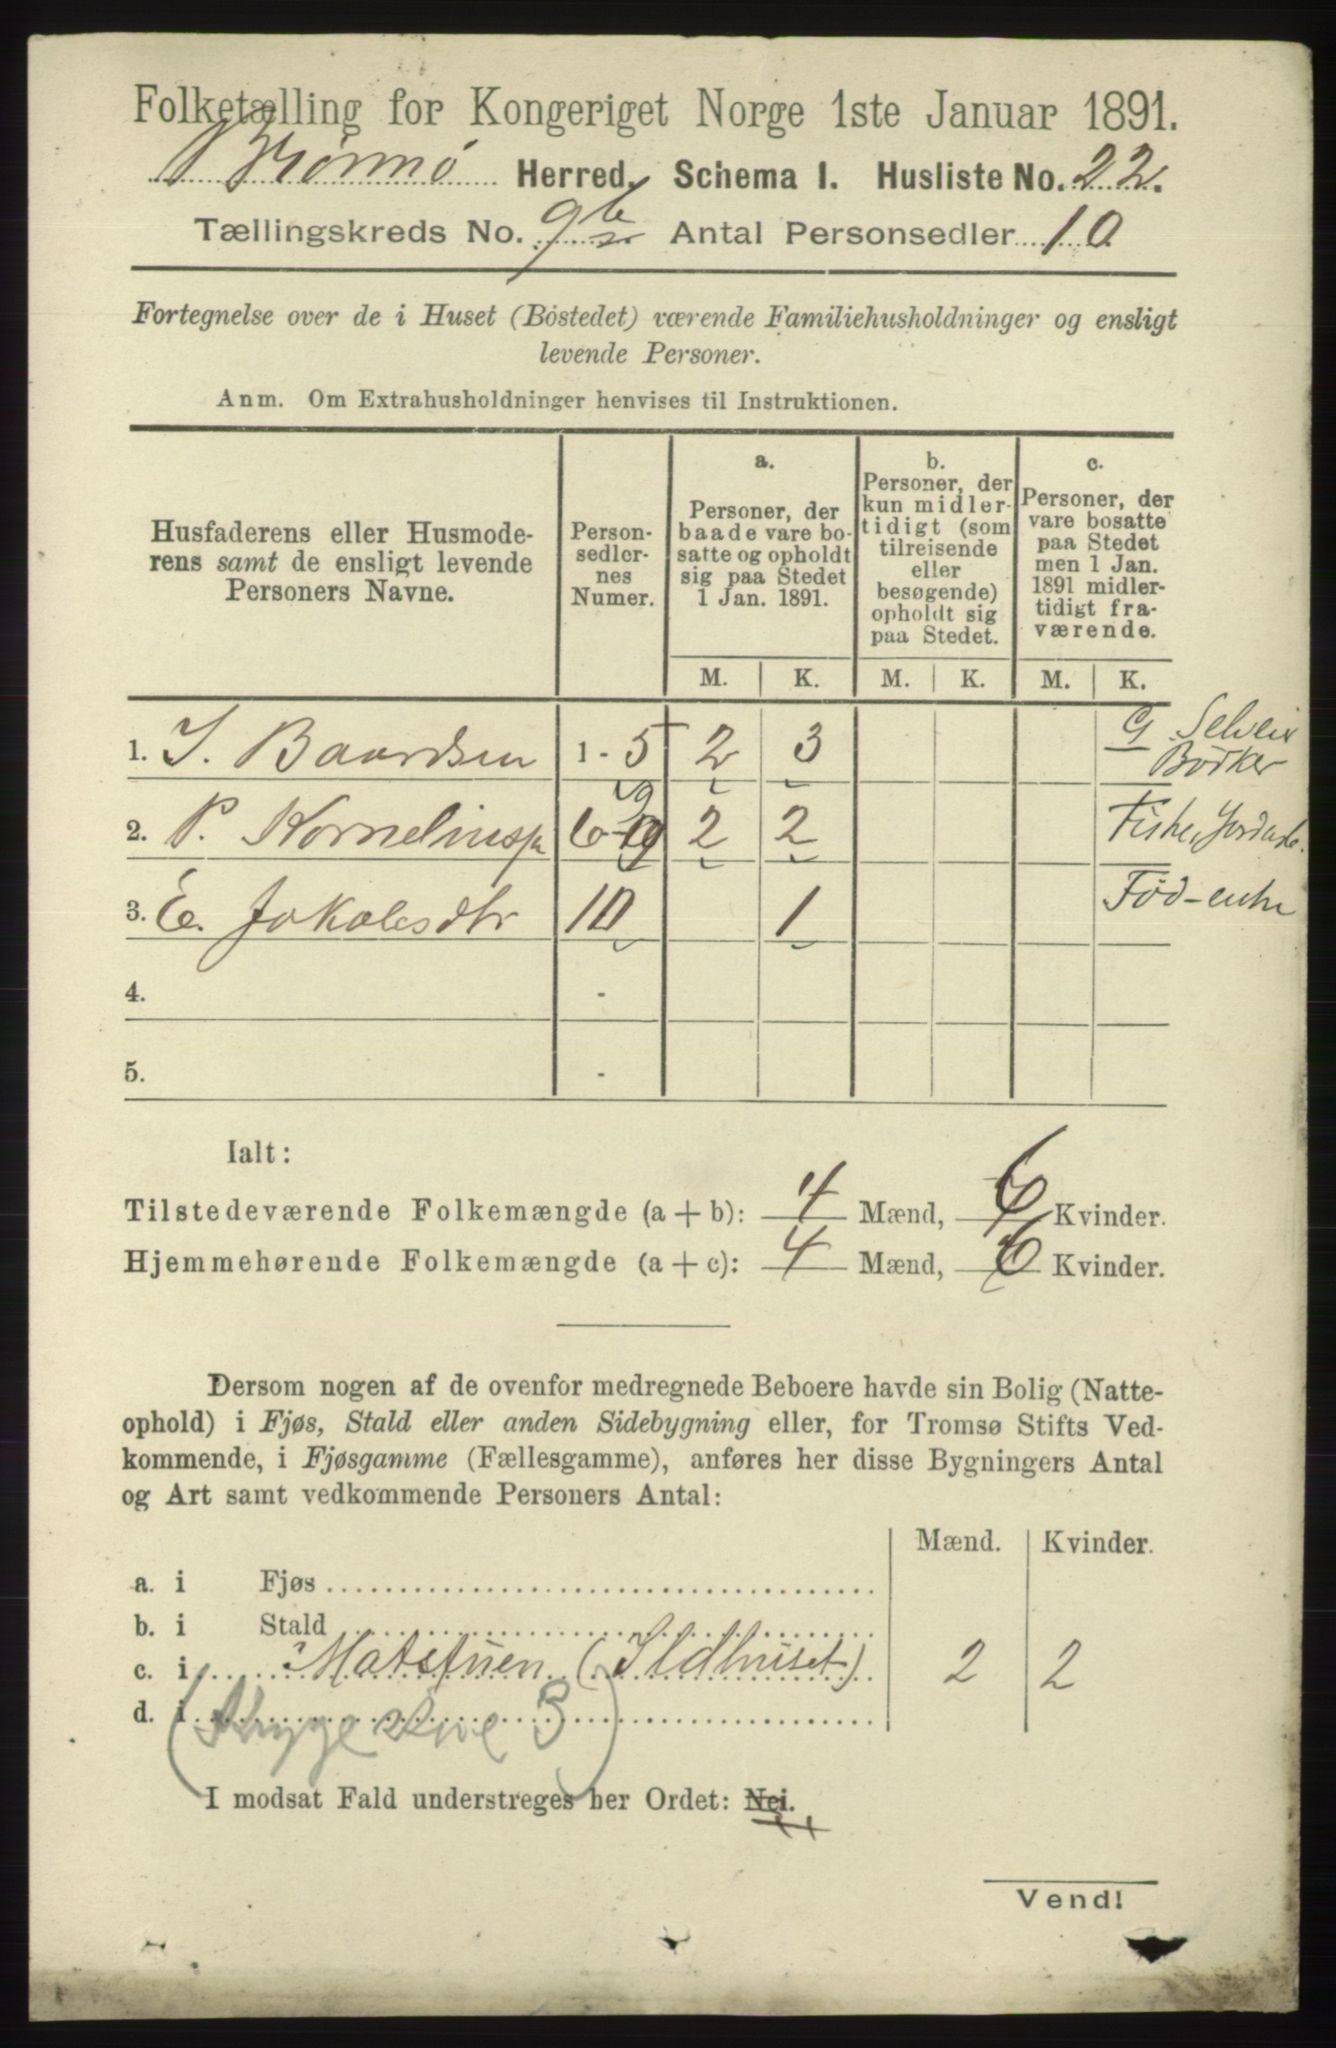 Folketælling for Kongeriget Norge 1ste Januar 1891.
Brønnø Herred. Schema I. Husliste No. 22.
Tællingskreds No. 9b Antal Personsedler 10
Fortegnelse over de i Huset (Bostedet) værende Familiehusholdninger og ensligt
levende Personer.
Anm. Om Extrahusholdninger henvises til Instruktionen.
Husfaderens eller Husmode-
rens samt de ensligt levende
Personers Navne.
Person-
sedler-
nes
Numer.
a.
Personer, der
baade vare bo-
satte og opholdt
sig paa Stedet
1 Jan. 1891.
b.
Personer, der
kun midler-
tidigt (som
tilreisende
eller
besøgende)
opholdt sig
paa Stedet.
c.
Personer, der
vare bosatte
paa Stedet
men 1 Jan.
1891 midler-
tidigt fra-
værende.
M. K. M. K. M. K.
1. I. Baardsen 1 - 5 2 3 G Selveier
Bödker
2. P. Korneliussen 6-9 2 2 Fisker,
3. E. Jakobsdtr 10 1 Föd-enke
4. -
5. -
Ialt:
Tilstedeværende Folkemængde (a + b): 4 Mænd, 6 Kvinder.
Hjemmehørende Folkemængde (a + c): 4 Mænd, 6 Kvinder.
Dersom nogen af de ovenfor medregnede Beboere havde sin Bolig (Natte-
ophold) i Fjøs, Stald eller anden Sidebygning eller, for Tromsø Stifts Ved-
kommende, i Fjøsgamme (Fællesgamme), anføres her disse Bygningers Antal
og Art samt vedkommende Personers Antal:
Mænd. Kvinder.
a. i Fjøs
b. i Stald
c. i Matstuen (Ildhuset) 2 2
d. i
I modsat Fald understreges her Ordet: Nei.
Vend!